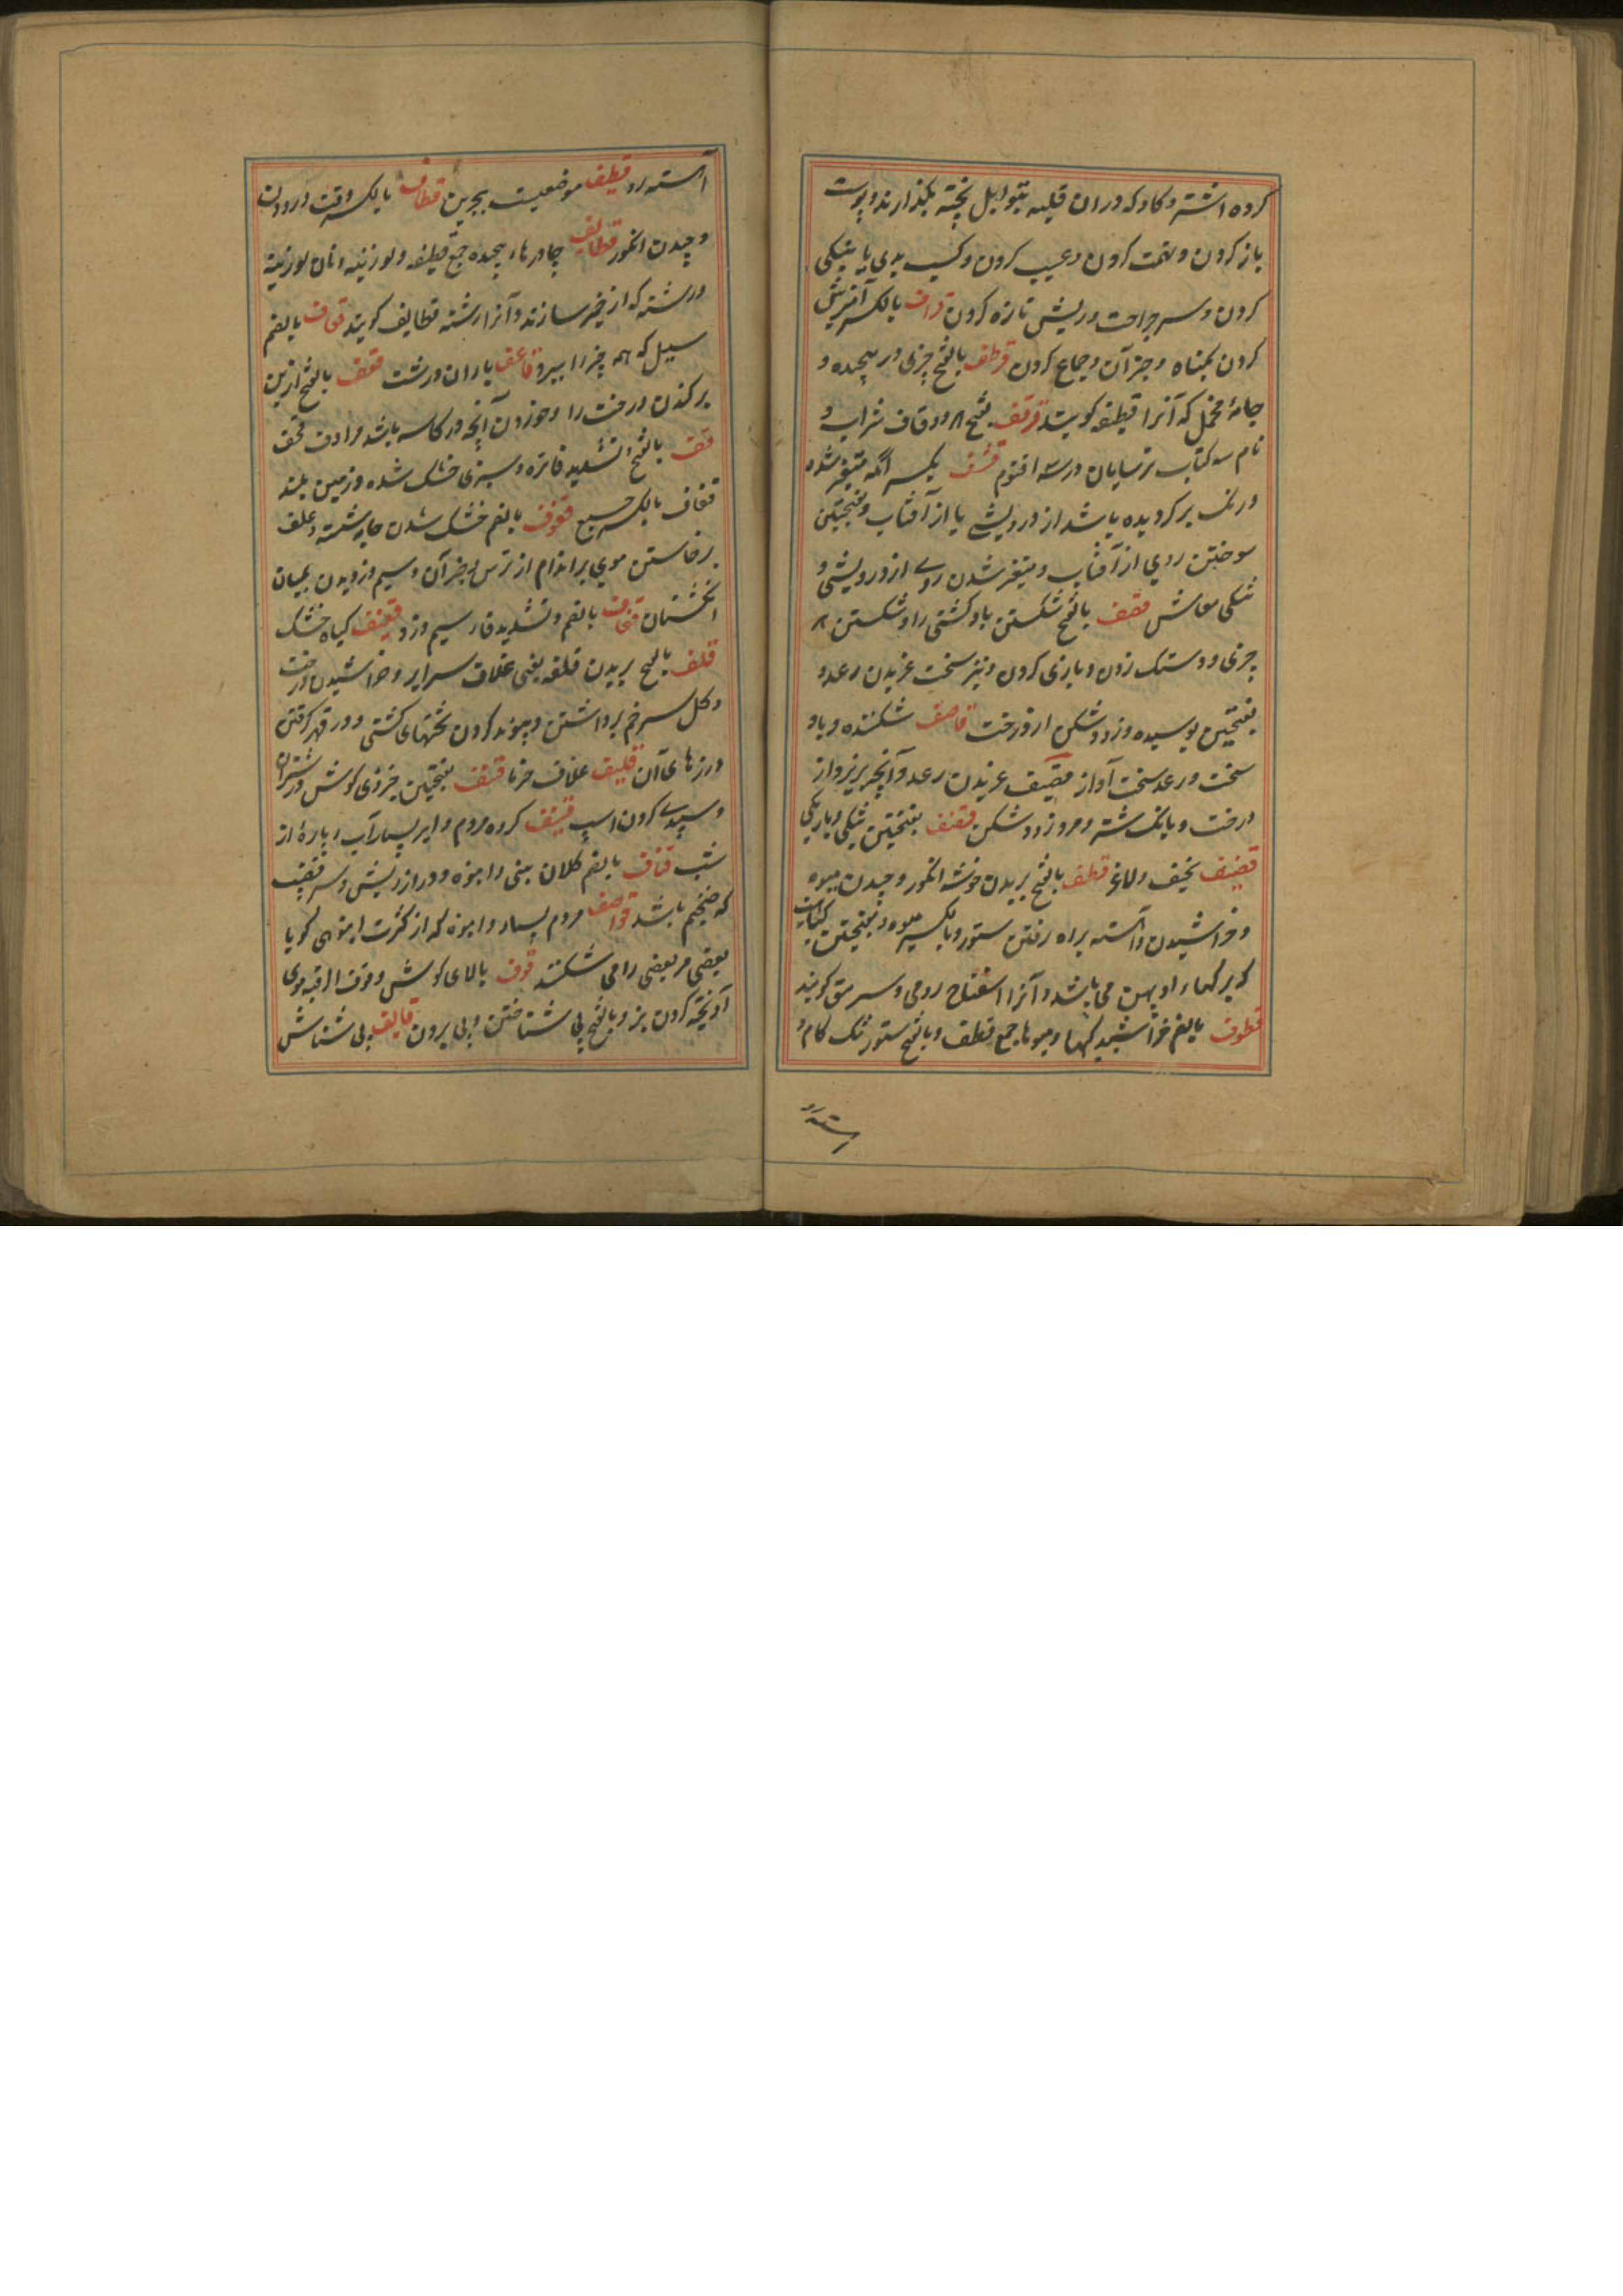 کرده اشتر و کاو که دران قلیه بتوابل پخته بکذارند و پوست
باز کردن و تهمت کردن و عیب کردن و کسب بدی یا نیکی
کردن و سر جراحت و ریش تازه کردن قراف بالکسر آمیزش
کردن بکناه و جز آن و جماع کردن قرطف بالفتح چیزی در پیچیده و
جامهٔ مخمل که آنرا قطیفه کویند قرقف بفتح هر دو قاف شراب و
نام سه کتاب ترسایان در سه اقنوم قشف بکسر آنکه متغیر شده
و رنک بر کردیده باشد از درویشی یا از آفتاب و بفتحتین
سوختن روی از آفتاب و متغیر شدن روی از درویشی و
تنکی معاش قصف بالفتح شکستن باد کشتی را و شکستن هر
چیزی و دستک زدن و بازی کردن و نیز سخت غریدن رعد و
بفتحتین پوسیده و زود شکن از درخت قاصف شکننده و باد
سخت و رعد سخت آواز قصیف غریدن رعد و آنچه بریزد از
درخت و بانک شتر و مرد زود شکن قضف بفتحتین تنکی و باریکی
قضیف نحیف و لاغر قطف بالفتح بریدن خوشه انکور و چیدن میوه
و خراشیدن و آهسته براه رفتن ستور و بالکسر میوه و بفتحتین کیاهیست
که برکهاء او پهن می باشد و آنرا اسفناخ رومی و سرمق کویند
قطوف بالضم خراشیدکیها و میوها جمع قطف و بالفتح ستور تنک کام و
آهسته رو
آهسته رو قطیف موضعیست ببحرین قطاف بالکسر وقت درودن
و چیدن انکور قطایف چادرهاء پیچیده جمع قطیفه و لوزینه و نان لوزینه
و رشته که از خمیر سازند و آنرا رشته قطایف کویند قعاف بالضم
سیل که همه چیز را ببرد قاعف باران درشت قعف بالفتح از بن
برکندن درخت را و خوردن آنچه در کاسه باشد مرادف قحف
قف بالفتح و تشدید فا تره و سبزی خشک شده و زمین بلند
قفاف بالکسر جمیع قفوف بالضم خشک شدن جامه شسته و علف
برخاستن موی بر اندام از ترس و جز آن و سیم دزدیدن بمیان
انکشتان قفاف بالضم و تشدید فا سیم دزد قفیف کیاه خشک
قلف بالفتح بریدن قلفه یعنی غلاف سر ایر و خراشیدن درخت
و کل سر خم برداشتن و پیوند کردن تختهای کشتی و در قیر کرفتن
درزهای آن قلیف غلاف خرما قنف بفتحتین خردی کوش و
و سپیدی کردن اسپ قنیف کروه مردم و ابر بسیار آب و پارهٔ از
شب قناف بالضم کلان بینی و انبوه و دراز ریش و سر قضیب
که ضخیم باشد قواصف مردم بسیار و انبوه که از کثرت انبوهی کویا
بعضی مر بعضی را می شکنند قوف بالای کوش و قوف الرقبه موی
آویخته کردن بز و بالفتح پی شناختن و پی بردن قایف پی شناس